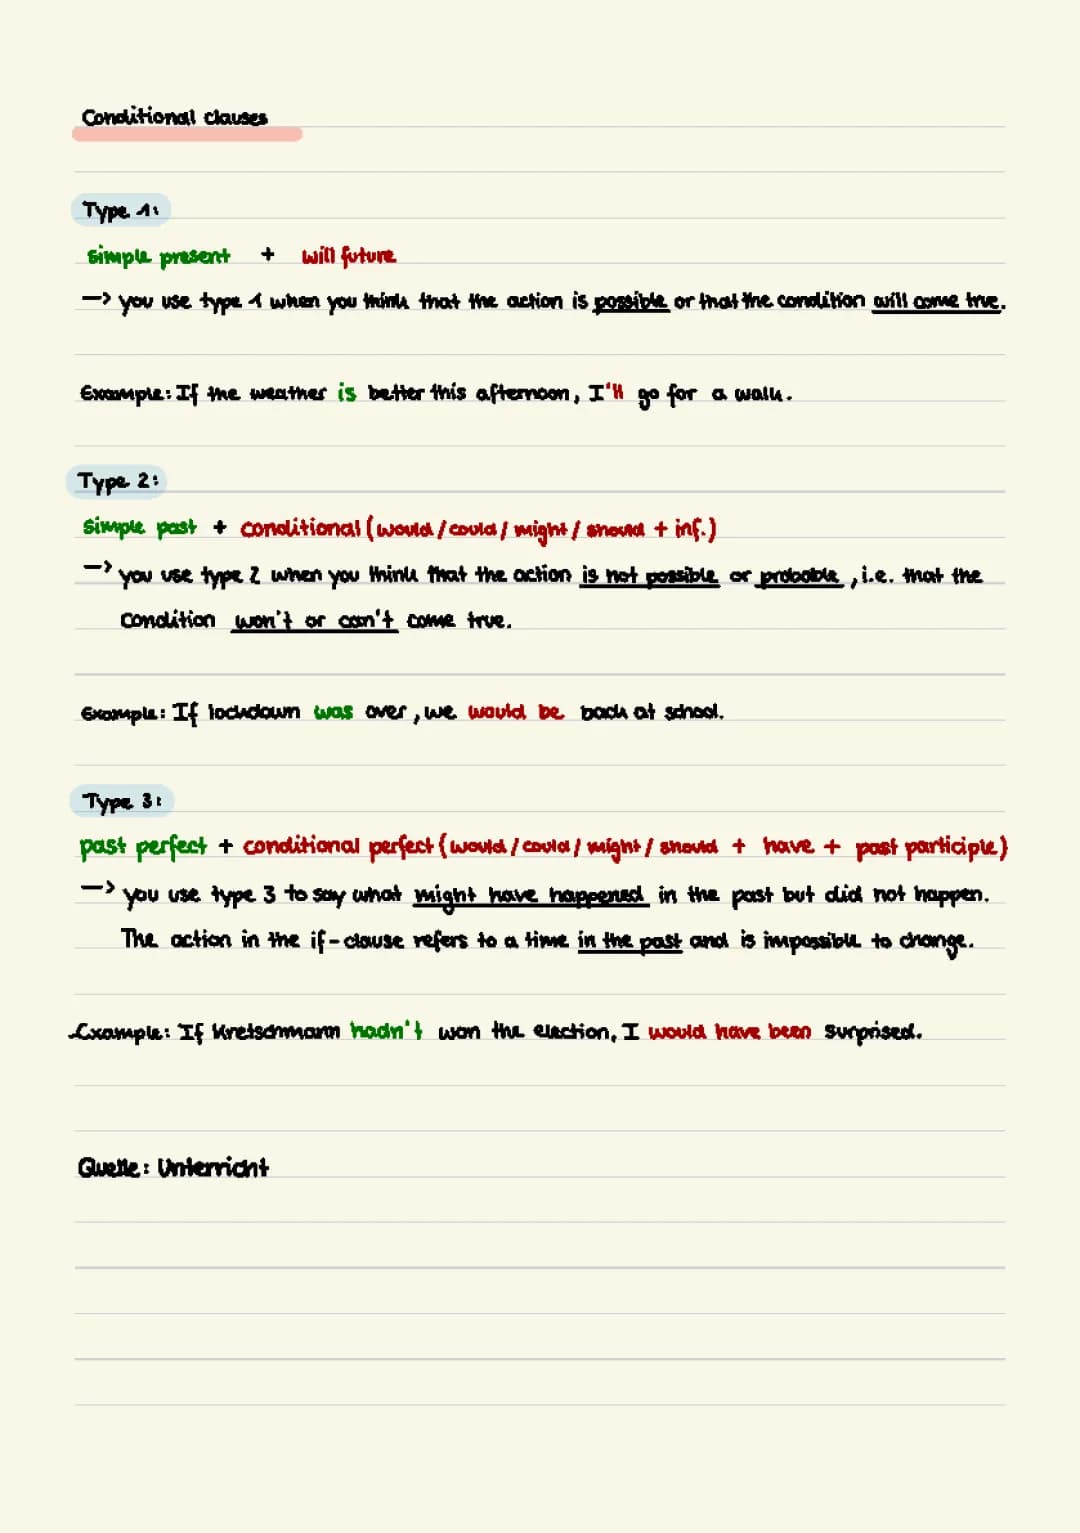 Conditional clauses
Type 1:
simple present + will future
—> you use type 1 when you think that the action is possible or that the condition will come true.
Example: If the weather is better this afternoon, I'll go for a walk.
Type 2:
simple past + conditional (would / could / might / should + inf.)
—> you use type 2 when you think that the action is not possible or probable, i.e. that the
condition won't or can't come true.
Example: If lockdown was over, we would be back at school.
Type 3:
past perfect + conditional perfect (would / could / might / should + have + past participle)
—> you use type 3 to say what might have happened in the past but did not happen.
The action in the if-clause refers to a time in the past and is impossible to change.
Example: If Kretschmann hadn't won the election, I would have been surprised.
Quelle: Unterricht